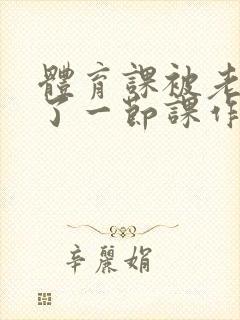 體育課被老
了一節課作
辛麗娟